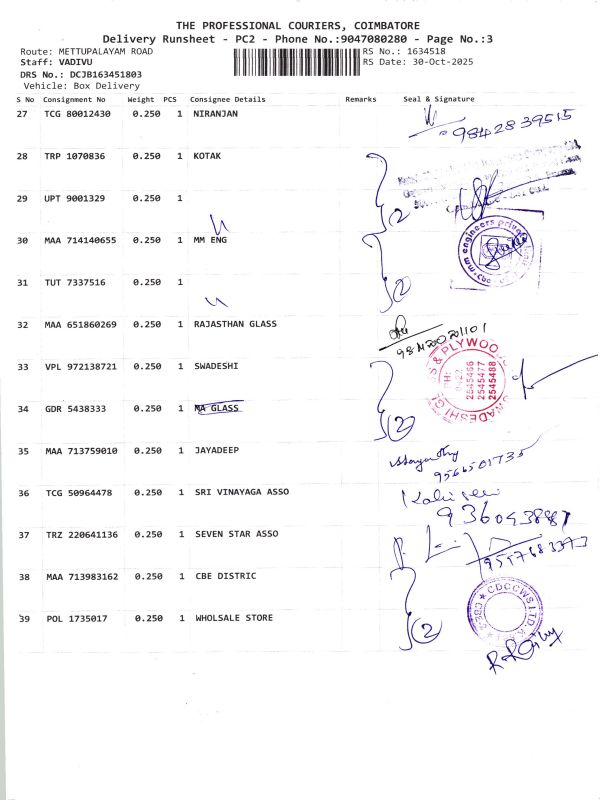 THE PROFESSIONAL COURIERS, COIMBATORE
Delivery Runsheet - PC2 - Phone No.:9047080280 - Page No.:3
Route: METTUPALAYAM ROAD RS No.: 1634518
Staff: VADIVU RS Date: 30-Oct-2025
DRS No.: DCJB163451803
Vehicle: Box Delivery
S No Consignment No Weight PCS Consignee Details Remarks Seal & Signature
27 TCG 80012430 0.250 1 NIRANJAN 9842839515
28 TRP 1070836 0.250 1 KOTAK
29 UPT 9001329 0.250 1
2
30 MAA 714140655 0.250 1 MM ENG
mm engineers private
31 TUT 7337516 0.250 1
2
32 MAA 651860269 0.250 1 RAJASTHAN GLASS
33 VPL 972138721 0.250 1 SWADESHI
& PLYWOO
SWADESHI GL
PH:
0422
2545466
2545477
2545488
34 GDR 5438333 0.250 1 MA GLASS
2
35 MAA 713759010 0.250 1 JAYADEEP
9566501735
36 TCG 50964478 0.250 1 SRI VINAYAGA ASSO
936043887
37 TRZ 220641136 0.250 1 SEVEN STAR ASSO
38 MAA 713983162 0.250 1 CBE DISTRIC
CDCCWS LTD.
39 POL 1735017 0.250 1 WHOLSALE STORE
2